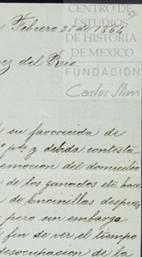 CENTRO DE
ESTUDIOS
DE HISTORIA
DE MEXICO
FUNDACIÓN
Carlos Slim
Febrero 27 de 1864
ez del Rio
su favorecida de
y debida contesta
emocion del domicilio
de los ganados etc hac
de Encinillas despues
pero sin embargo
fin de ver el tiempo
desocupacion de la